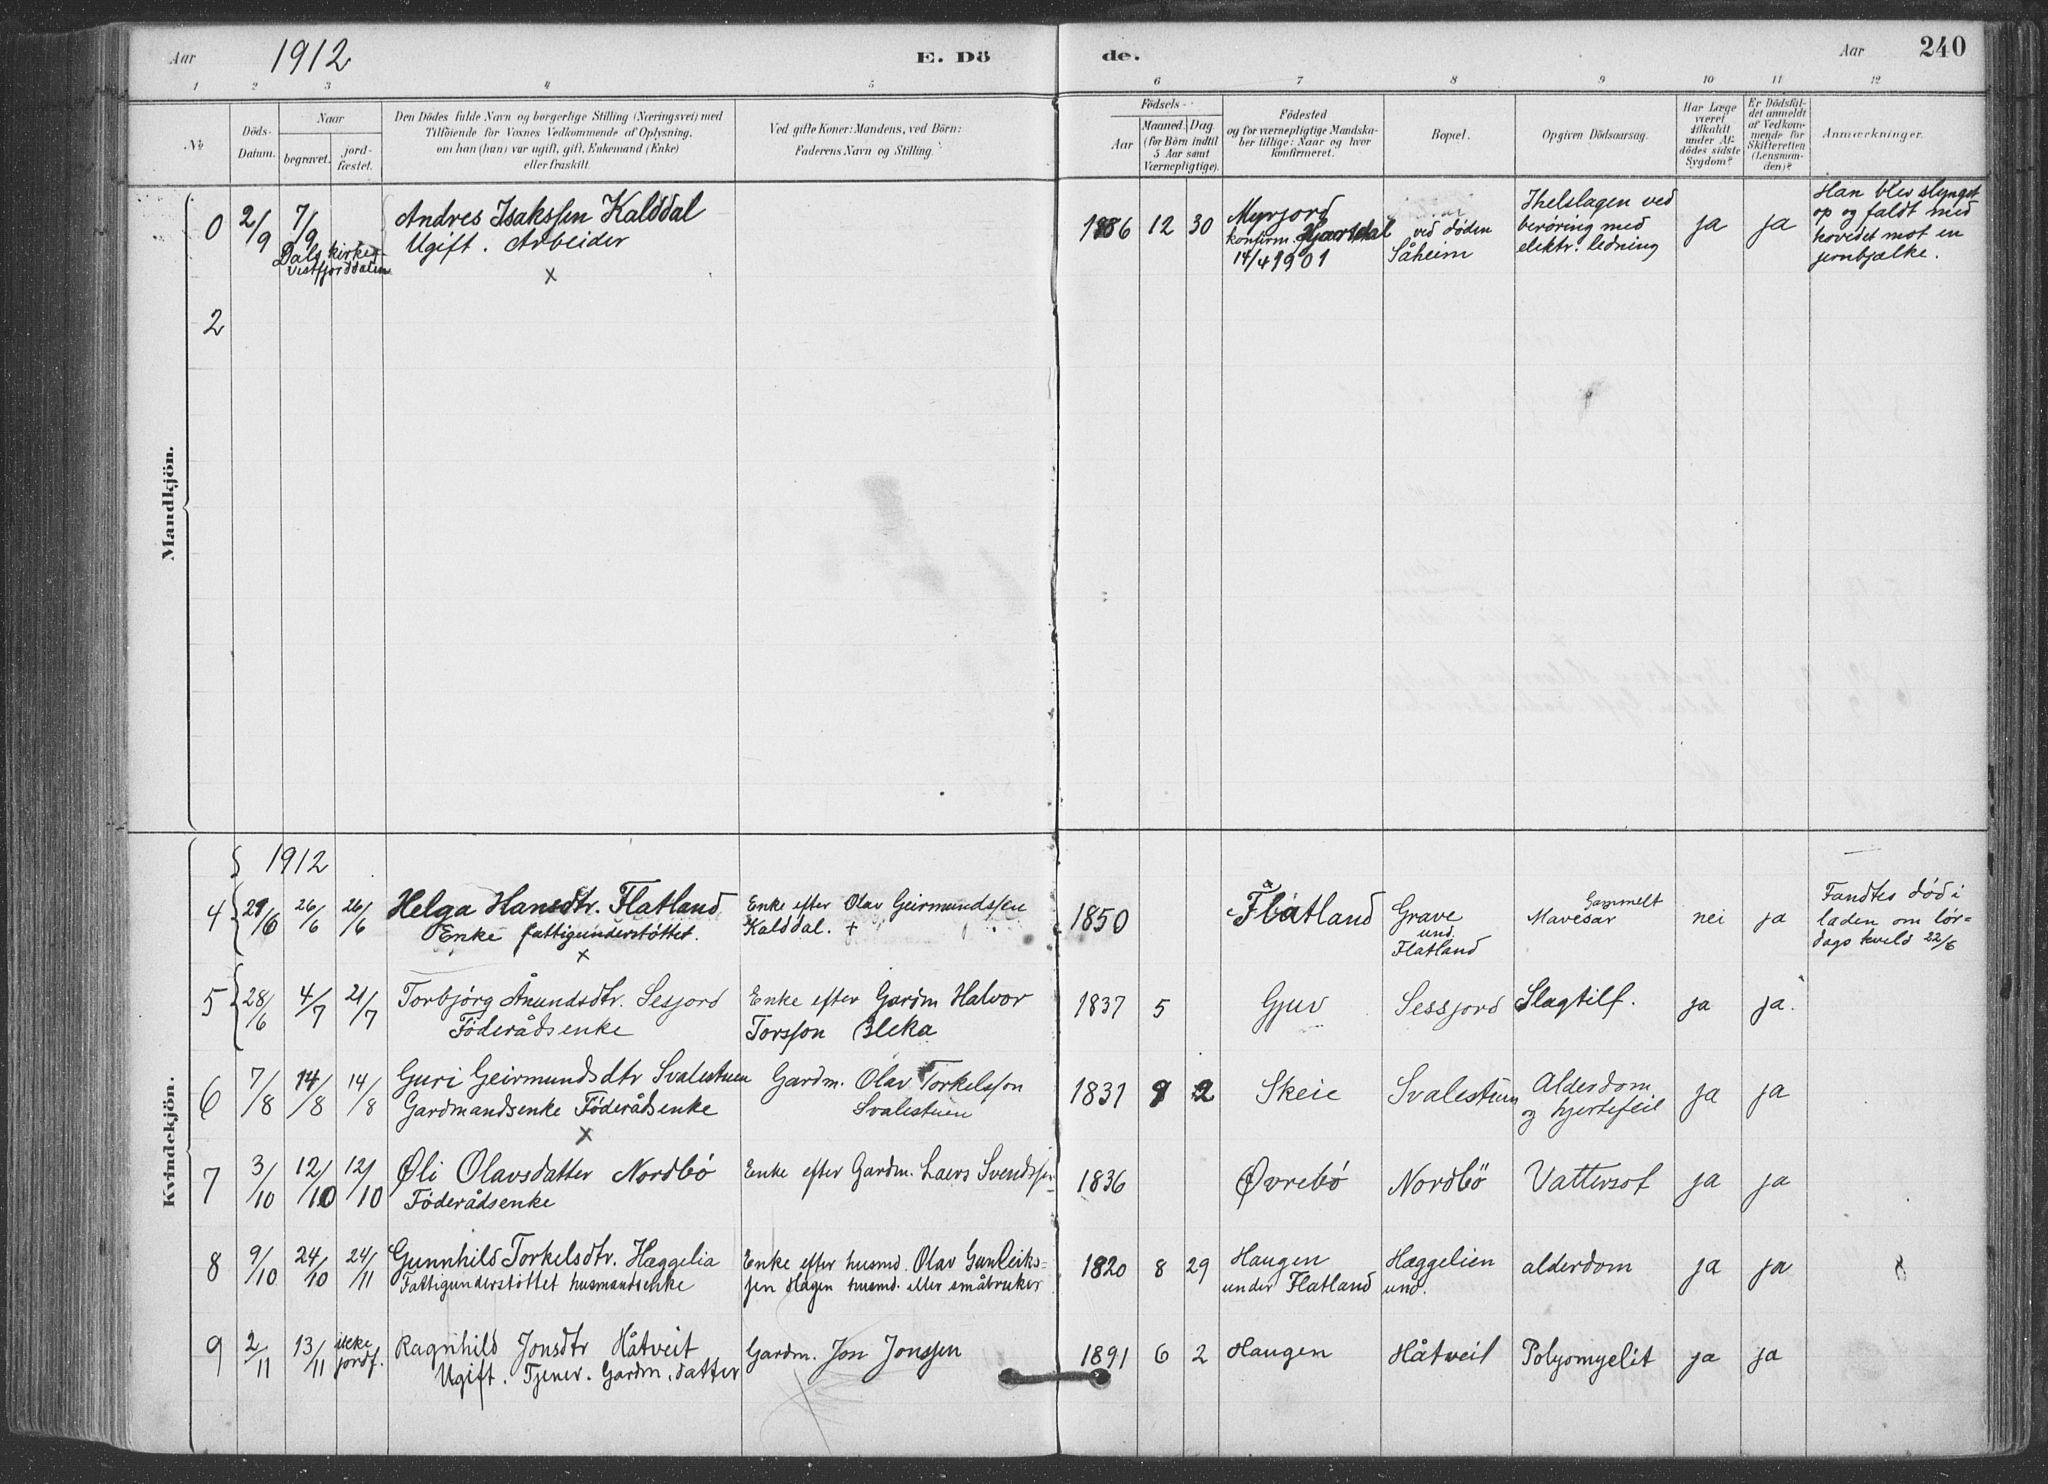 Aar 1912 E. Dö
de. Aar 240
1 2 3 4 5 6 7 8 9 10 11 12
№
Döds-Datum.
Naar
begravet.
jord-fæstet.
Den Dödes fulde Navn og borgerlige Stilling (Næringsvei) med
Tilföiende for Voxnes Vedkommende af Oplysning,
om han (hun) var ugift, gift, Enkemand (Enke)
eller fraskilt.
Ved gifte Koner: Mandens, ved Börn:
Faderens Navn og Stilling.
Födsels-
Aar
Maaned. Dag
(for Börn indtil
5 Aar samt
Værnepligtige).
Födested
og for værnepligtige Mandska-
ber tillige: Naar og hvor
konfirmeret.
Bopæl.
Opgiven Dödsaarsag.
Har Læge
været
tilkaldt
under Af-
dödes sidste
Sygdom?
Er Dödsfal-
det anmeldt
af Vedkom-
mende for
Skifteretten
(Lensman-
den)?
Anmærkninger.
Mandkjön.
0 2/9 7/9
Dals kirkeg.
vestfjorddalen
Andres Isakssen Kalddal
Ugift. Arbeider
x
1886 12 30
Myrjord
konfirm. Hjartdal
14/4 1901
ved døden
Såheim
Ihelslagen ved
berøring med
elektr. ledning
ja ja
Han blev slynget
op og faldt med
hovedet mot en
jernbjælke.
2
Kvindekjön.
1912
4 21/6 26/6 26/6
Helga Hansdtr. Flatland
Enke fattigunderstøttet.
x
Enke efter Olav Geirmundssen
Kalddal. +
1850
Flatland
Grave
und.
Flatland
Gammelt
Mavesår
nei ja
Fandtes død i
laden om lør-
dags kveld 22/6
5 28/6 4/7 21/7
Torbjørg Ånundsdtr. Sesjord
Föderådsenke
Enke efter Gardm Halvor
Torsson Bleka
1837 5 Gjuv Sessjord Slagtilf. ja ja.
6 7/8 14/8 14/8
Guri Geirmundsdtr Svalestuen
Gardmandsenke Föderådsenke
x
Gardm. Olav Torkelsson
Svalestuen
1831 9 2 Skeie Svalestuen
Alderdom
og hjertefeil
ja ja
7 3/10 12/10 12/10
Øli Olavsdatter Nordbø
Föderådsenke
Enke efter Gardm. Laers Svendssen
1836 Øvrebø Nordbö Vattersot ja ja
8 9/10 24/10 24/11
Gunnhild Torkelsdtr. Hæggelia
Fattigunderstøttet husmandsenke
Enke efter husmd. Olav Gunleiks-
sen Hagen husmd. eller småbruker
1820 8 29
Haugen
under Flatland
Hæggelien
und.
alderdom ja ja
9 2/11 13/11 ikke
jordf.
Ragnhild Jonsdtr Håtveit
Ugift. Tjener. Gardm. datter
Gardm. Jon Jonssen
1891 6 2 Haugen Håtveit Polyomyelit ja ja